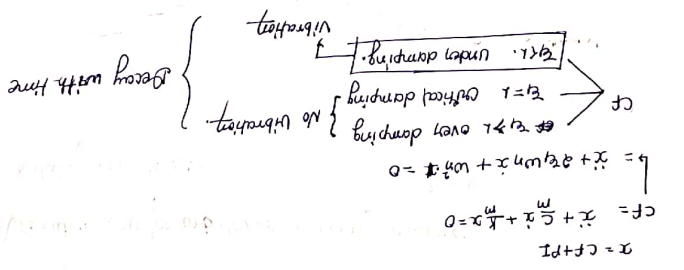 x = CF + PI
CF = ẍ + c/m ẋ + k/m x = 0
↳ = ẍ + 2ξωn ẋ + ωn² x = 0
CF
ξ > 1 over damping
ξ = 1 critical damping } No vibration.
ξ < 1. under damping. → vibration
} Decay with time